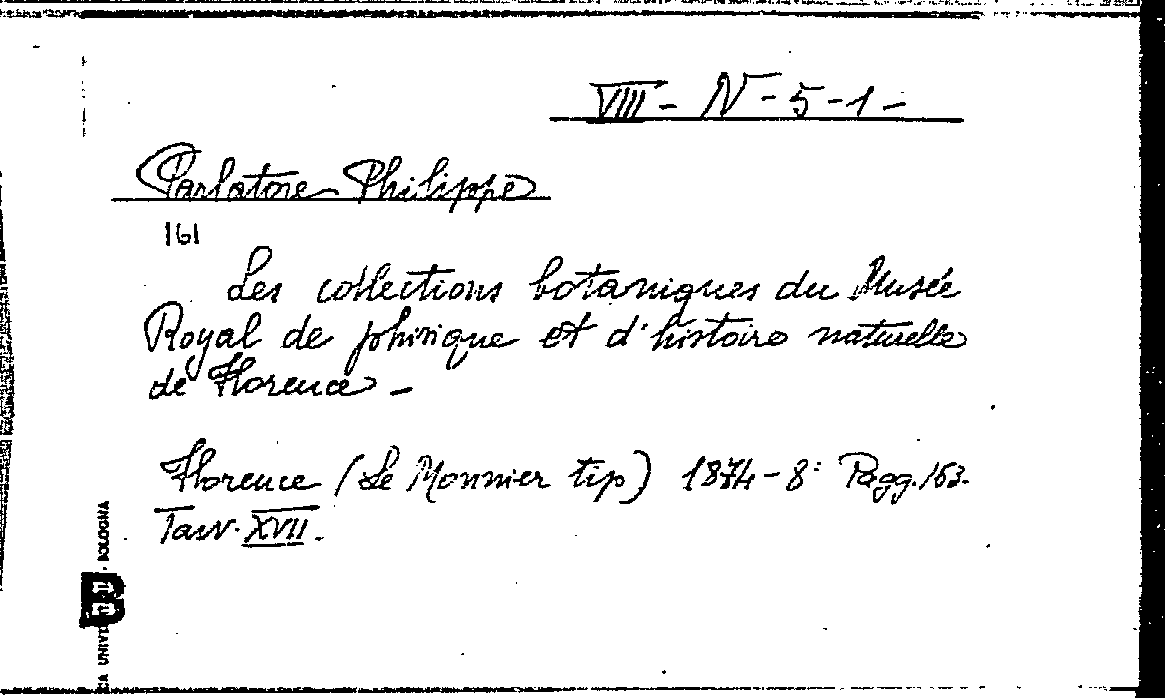 VIII - N - 5 - 1 -
Parlatore Philippe
161
Les collections botaniques du Musée
Royal de phisique et d'histoire naturelle
de Florence -
Florence (Le Monnier tip) 1874 - 8º Pagg. 163.
Tavv. XVII.
CA UNIV · BOLOGNA